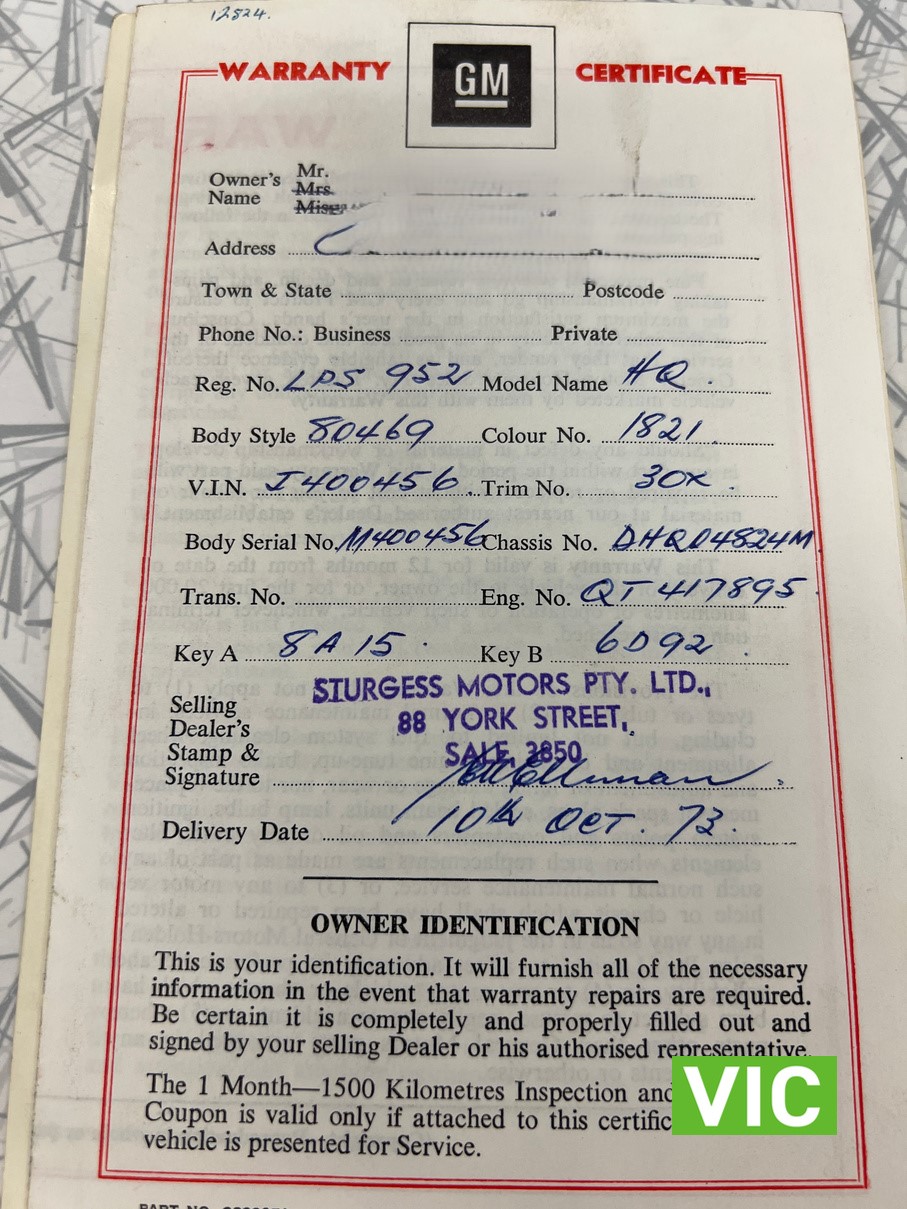 12824.
WARRANTY GM CERTIFICATE
Owner's Name Mr. Mrs. Miss
Address
Town & State Postcode
Phone No.: Business Private
Reg. No. LDS 952 Model Name HQ.
Body Style 80469 Colour No. 1821.
V.I.N. J400456. Trim No. 30X.
Body Serial No. M400456 Chassis No. DHQD4824M
Trans. No. Eng. No. QT417895
Key A 8A15. Key B 6D92.
STURGESS MOTORS PTY. LTD.,
88 YORK STREET,
SALE, 3850
Selling
Dealer's
Stamp &
Signature
Delivery Date 10th OCT. 73.
OWNER IDENTIFICATION
This is your identification. It will furnish all of the necessary
information in the event that warranty repairs are required.
Be certain it is completely and properly filled out and
signed by your selling Dealer or his authorised representative.
The 1 Month—1500 Kilometres Inspection and
Coupon is valid only if attached to this certific
vehicle is presented for Service.
VIC
PART NO.